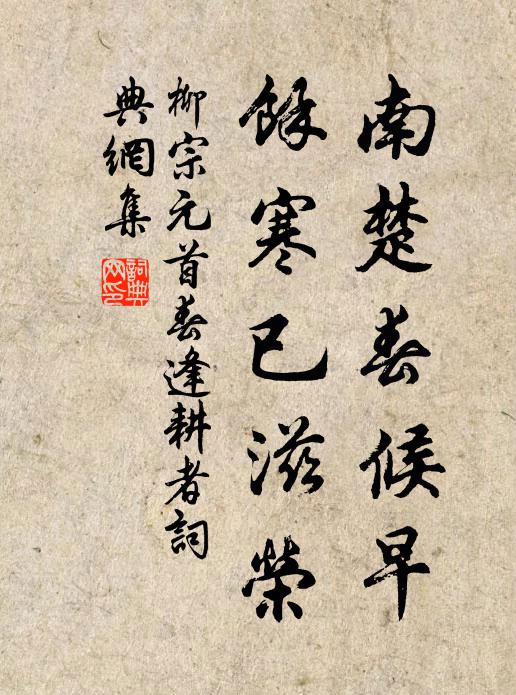 南楚春候早
餘寒已滋榮
柳宗元首春逢耕者詞
典網集
詞典
网印